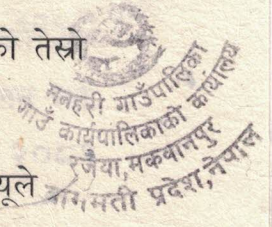 को तेस्रो
मनहरी गाउँपालिका
गाउँ कार्यपालिकाको कार्यालय
रजैया,मकवानपुर
बागमती प्रदेश,नेपाल
यूले